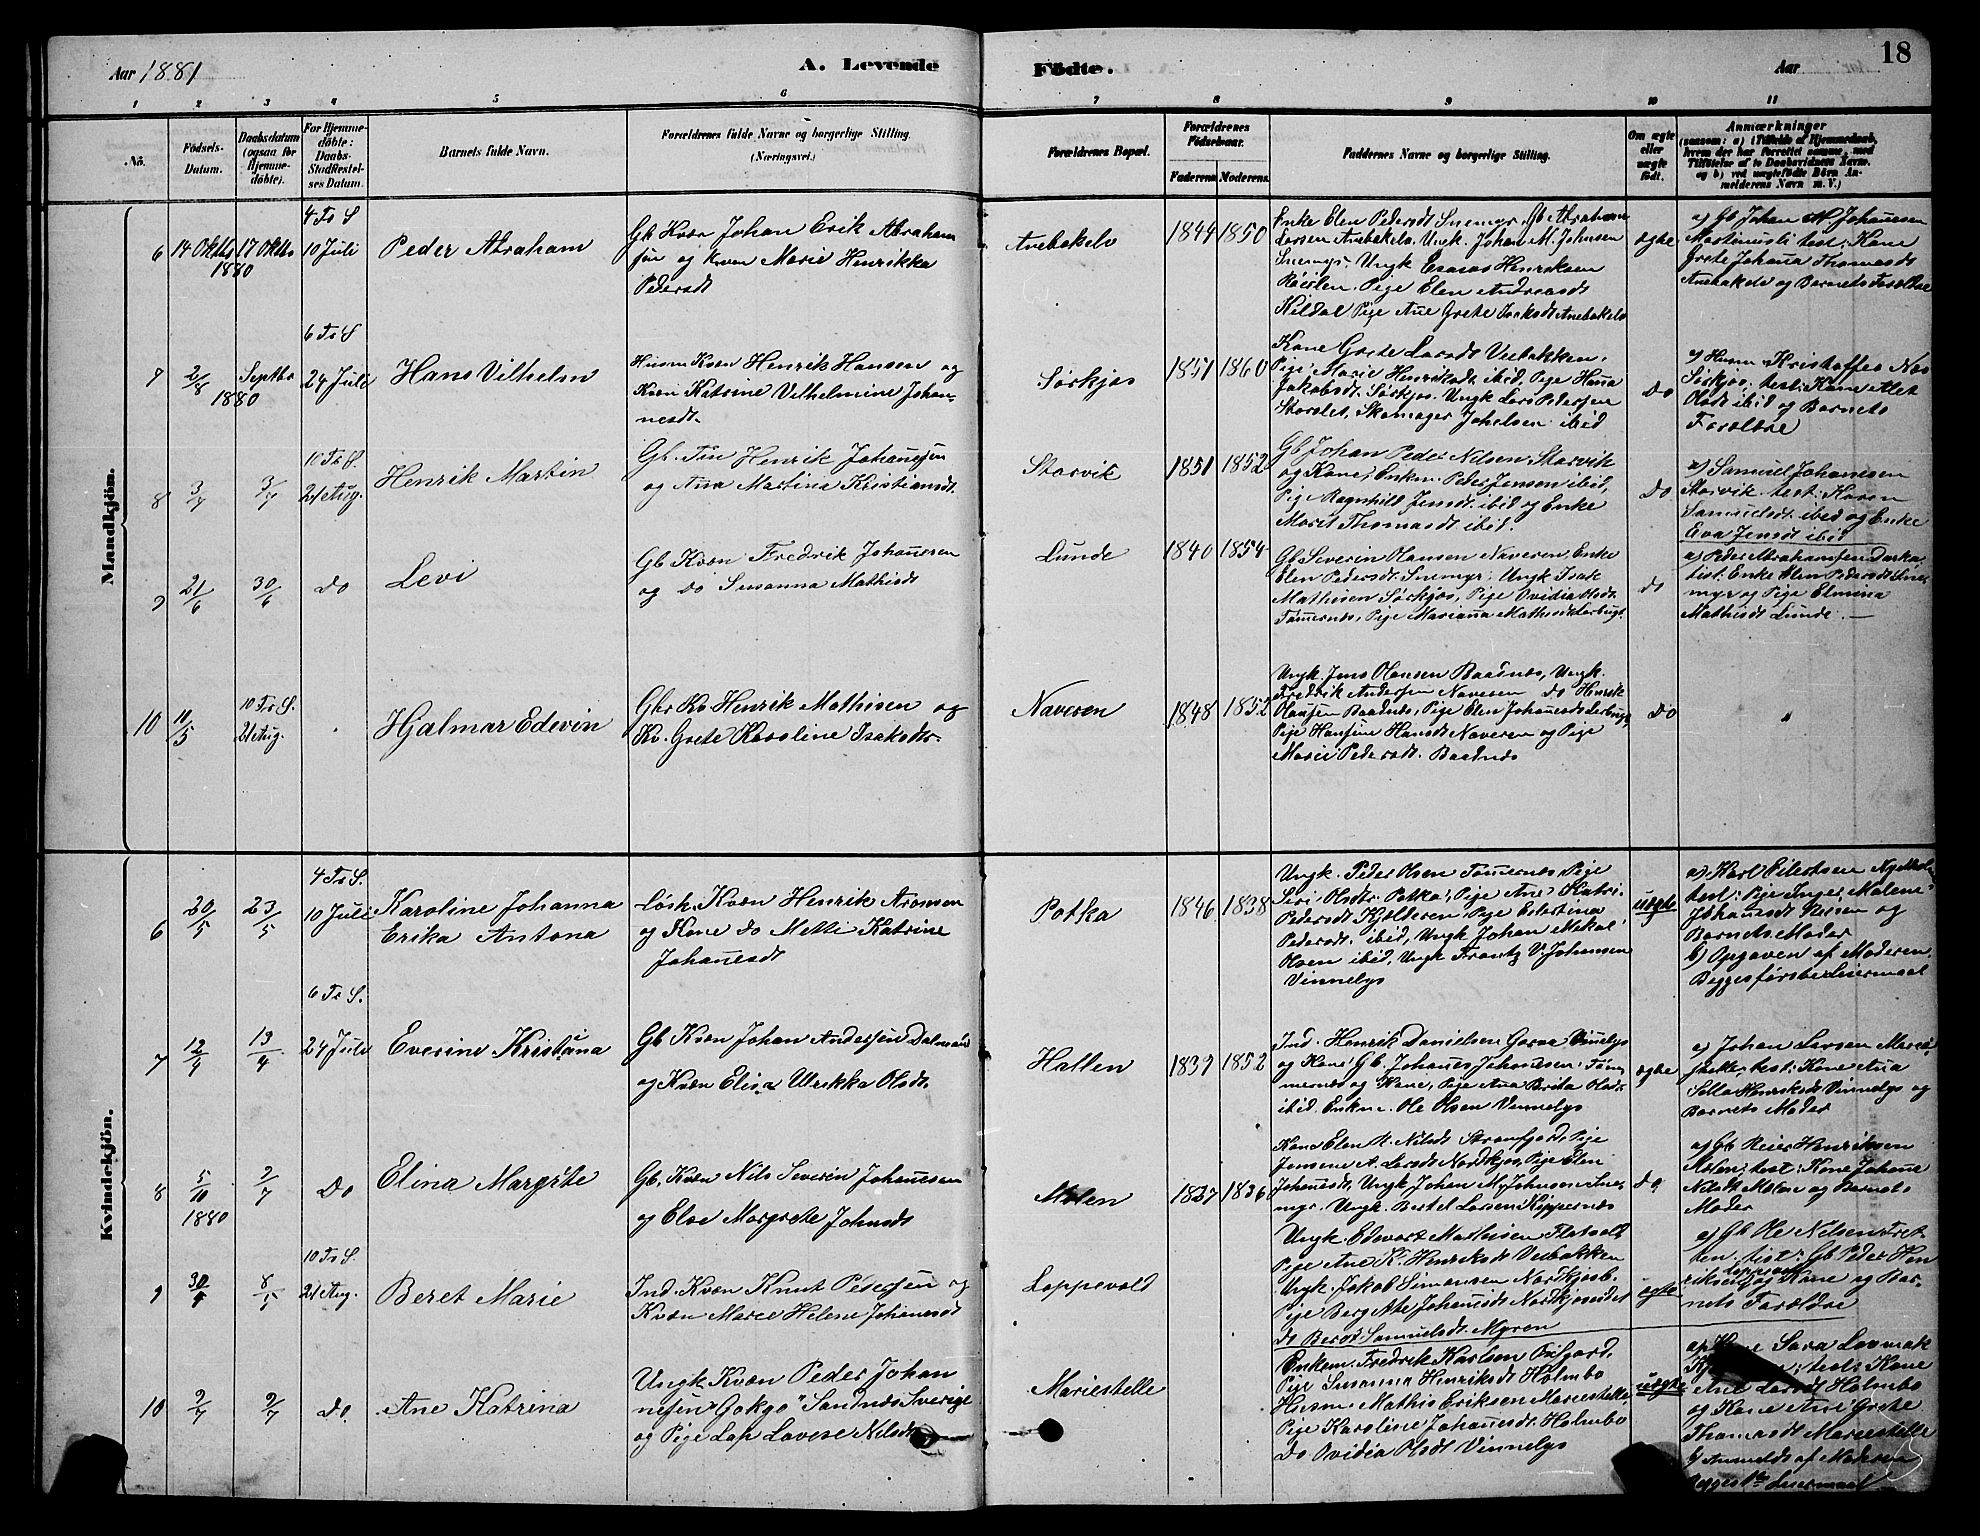 Aar 1881
A. Levende
Födte.
Aar
18
1 2 3 4 5 6 7 8 9 10 11
No.
Födsels-Datum.
Daabsdatum (ogsaa for Hjemme-döbte).
For Hjemme-döbte: Daabs-Stadfestel-ses Datum.
Barnets fulde Navn.
Forældrenes fulde Navne og borgerlige Stilling. (Næringsvei.)
Forældrenes Bopæl.
Forældrenes Födselsaar.
Faderens Moderens
Faddernes Navne og borgerlige Stilling.
Om ægte eller uægte födt.
Anmærkninger
Mandkjön.
6 14 Oktbr 1880 17 Oktbr 4 Tr S 10 Juli
Peder Abraham
Gb Kvæn Johan Erik Abraham
sen og Kvæn Marie Henrikka
Pedersdt
Anebakelv
1844 1850
Enke Elen Pedersdt Snemyr, Gb Abraham
Larsen Anebakelv, Ungk. Johan M. Johnsen
Snemyr. Ungk Esaias Henriksen
Pige Elen Andreasdt
Kildal Pige Ane Grete Anebakelv
ægte
a) Gb Johan M Johansen
test: Kone
Grete Johana Thomasdt
Anebakelv og Barnets Forældre
7 2/8 1880 Septbr 6 Tr S 24 Juli
Hans Vilhelm
Husm Kvæn Henrik Hansen og
Kvæn Katrine Vilhelmine Johan-
nesdt.
Sörkjos
1851 1860
Kone Grete Larsdt Veibakken,
Pige Marie Henriksdt ibid, Pige Hana
Jakobsdt. Sörkjos. Ungk Lars Pedersen
Storslet, Skomager Johelsen ibid
Do
a) Husm Kristoffer
Sörkjos, test: Kone Alet
Olsdt ibid og Barnets
Forældre
8 3/7 3/7 10 Tr S. 21 Aug.
Henrik Martin
Gb. Fin Henrik Johanesen
og Ana Martina Kristiansdt.
Storvik
1851 1852
Gb Johan Peder Nilsen Storvik
og Kone, Enkem. Peder Jensen ibid,
Pige Ragnhild Jensdt ibid og Enke
Marit Thomasdt ibid.
Do
a) Samuel Johanesen
Storvik. test: Karen
Samuelsdt. ibid og Enke
Eva Jensdt ibid
9 21/6 30/6 Do
Levi
Gb Kvæn Fredrik Johanesen
og do Susanna Mathisdt
Lunde
1840 1854
Gb Severin Hansen Naveren, Enke
Elen Pedersdt Snemyr, Ungk Isak
Mathisen Sörkjos, Pige Ovidia Olsdt.
Tömernes, Pige Mariana Mathisdt
do
a) Peder Abrahamsen
test: Enke Elen Pedersdt Sne-
myr og Pige Elmina
Mathisdt Lunde.
10 11/5 10 Tr S. 21 Aug.
Hjalmar Edevin
Gbr Kv Henrik Mathisen og
Kv. Grete Karoline Isaksdtr.
Naveren
1848 1852
Ungk Jens Hansen Baadnes, Ungk.
Fredrik Andersen Naveren do Henrik
Hansen Baadnes, Pige Elen Johanesdt
Pige Hansine Hansdt Naveren og Pige
Marie Pedersdt. Baadnes
Do
"
Kvindekjön.
6 20/5 23/5 4 Tr S. 10 Juli
Karoline Johanna
Erika Antona
Lösk. Kvæn Henrik Aronsen
og Kone do Mette Katrine
Johanesdt
Potka
1846 1838
Ungk. Peder Olsen Tömernes Pige
Seri Olsdtr. Potka, Pige Ane Katri.
Pedersdt Kjelderen, Pige Celestina
Pedersdt. ibid, Ungk Johan Mikal
Olsen ibid, Ungk Frantz V. Johansen
Vinnelys
uægte
a) Karl Eilertsen
test: Pige Inger Malene
Johanesdt Reisen og
Barnets Moder
b) Opgaven af Moderen
Begges förste Leiermaal
7 12/4 13/4 6 Tr S. 24 Juli
Everine Kristiana
Gb Kvæn Johan Andersen Dalmand
og Kvæn Elisa Ulrikka Olsdt.
Hatten
1837 1852
Ind. Henrik Danielsen Garva Vinnelys
og Kone Gb. Johanes Johanesen Töm-
mernes og Kone, Pige Ana Brita Olsdt.
ibid. Enkm. Ole Olsen Vinnelys
ægte
a) Johan Larsen
test: Kone Ana
Sella Henriksdt Vinnelys og
Barnets Moder
8 5/10 1880 2/7 Do
Elina Margrete
Gb. Kvæn Nils Severin Johanesen
og Else Margrete Johnsdt
Molen
1837 1836
Kone Elen K. Nilsdt Straumfjord, Pige
Jensine A. Larsdt Nordkjos, Pige Elen
Johanesdt. Ungk Johan M. Johnsen Sne-
myr. Ungk. Bertel Larsen Kippernes
do
a) Gb Reier Henriksen
Molen, test: Kone Johane
Nilsdt Molen og Barnets
Moder
9 30/4 8/5 10 Tr S. 21 Aug.
Beret Marie
Ind. Kvæn Knut Pedersen og
Kvæn Maree Helene Johanesdt
Loppevold
Ungk. Edevart Mathisen Flatvold
Pige Ane K. Henriksdt Veibakken
Ungk. Jakob Simonsen Nordkjosb.
Pige Berg Johanesdt Nordkjoseidet
do Beret Samuelsdt. Myren
ægte
a) Gb Ole Nilsen
test: Gb Peder Hen
riksen Loppevold og Kone og Bar-
nets Forældre
10 2/7 2/7 Do
Ane Katrina
Ungk Kvæn Peder Johan
nesen "Gokgo" Sandnes Sverige
og Pige Lap Lovise Nilsdt
Mariestelle
Enkem. Fredrik Karlsen
Pige Susanna Henriksdt Holmbo
Husm Mathis Eriksen Mariestelle,
Pige Karoline Johanesdt. Holmbo
Do Ovidia Olsdt Vinnelys
uægte
a) Kone Sara
test: Kone
Ane Larsdt Holmbo
og Kone Ane Grete
Thomasdt Mariestelle
b) Anmeldt af Moderen
Begges Leiermaal